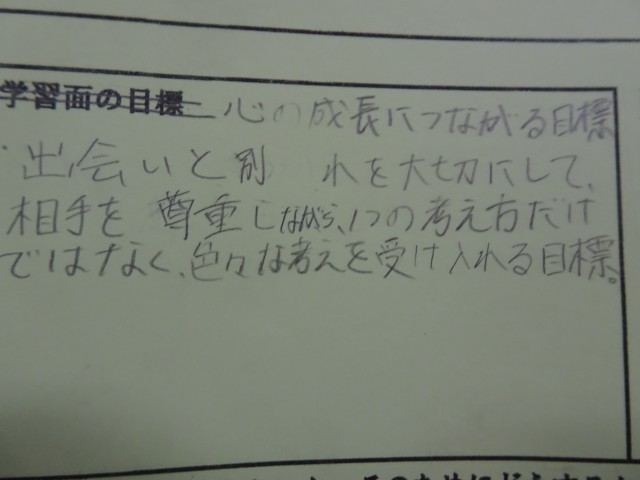 学習面の目標 心の成長につながる目標
出会いと別れを大切にして、
相手を尊重しながら、1つの考え方だけ
ではなく、色々な考えを受け入れる目標。